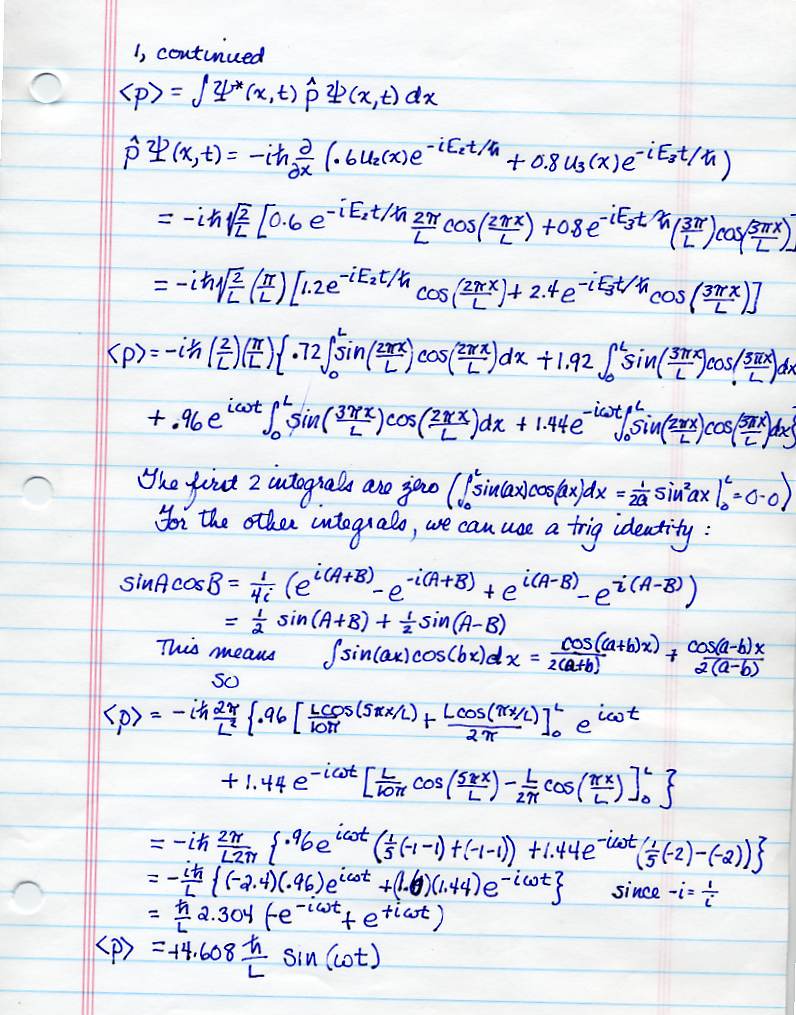 1, continued
<p> = ∫Ψ*(x,t) p̂ Ψ(x,t) dx
p̂ Ψ(x,t) = -iħ ∂/∂x (.6 u₂(x)e^{-iE₂t/ħ} + 0.8 u₃(x)e^{-iE₃t/ħ})
= -iħ√(2/L) [0.6 e^{-iE₂t/ħ} 2π/L cos(2πx/L) + 0.8 e^{-iE₃t/ħ} (3π/L) cos(3πx/L)]
= -iħ√(2/L) (π/L) [1.2e^{-iE₂t/ħ} cos(2πx/L) + 2.4e^{-iE₃t/ħ} cos(3πx/L)]
<p> = -iħ (2/L)(π/L) {.72∫₀ᴸ sin(2πx/L) cos(2πx/L) dx + 1.92 ∫₀ᴸ sin(3πx/L) cos(3πx/L) dx
+ .96 e^{iωt} ∫₀ᴸ sin(3πx/L) cos(2πx/L) dx + 1.44e^{-iωt} ∫₀ᴸ sin(2πx/L) cos(3πx/L) dx}
The first 2 integrals are zero (∫₀ᴸ sin(ax)cos(ax)dx = 1/2a sin²ax |₀ᴸ = 0-0)
For the other integrals, we can use a trig identity :
sinAcosB = 1/4i (e^{i(A+B)} - e^{-i(A+B)} + e^{i(A-B)} - e^{-i(A-B)})
= 1/2 sin(A+B) + 1/2 sin(A-B)
This means ∫sin(ax)cos(bx)dx = cos((a+b)x)/2(a+b) + cos(a-b)x/2(a-b)
so
<p> = -iħ 2π/L² {.96 [L cos(5πx/L)/10π + L cos(πx/L)/2π]₀ᴸ e^{iωt}
+ 1.44 e^{-iωt} [L/10π cos(5πx/L) - L/2π cos(πx/L)]₀ᴸ }
= -iħ 2π/L2π {.96e^{iωt} (1/5(-1-1) + (-1-1)) + 1.44e^{-iωt} (1/5(-2) - (-2))}
= -iħ/L {(-2.4)(.96)e^{iωt} + (1.6)(1.44)e^{-iωt}} since -i = 1/i
= ħ/L 2.304 (-e^{-iωt} + e^{+iωt})
<p> = +4.608 ħ/L sin(ωt)